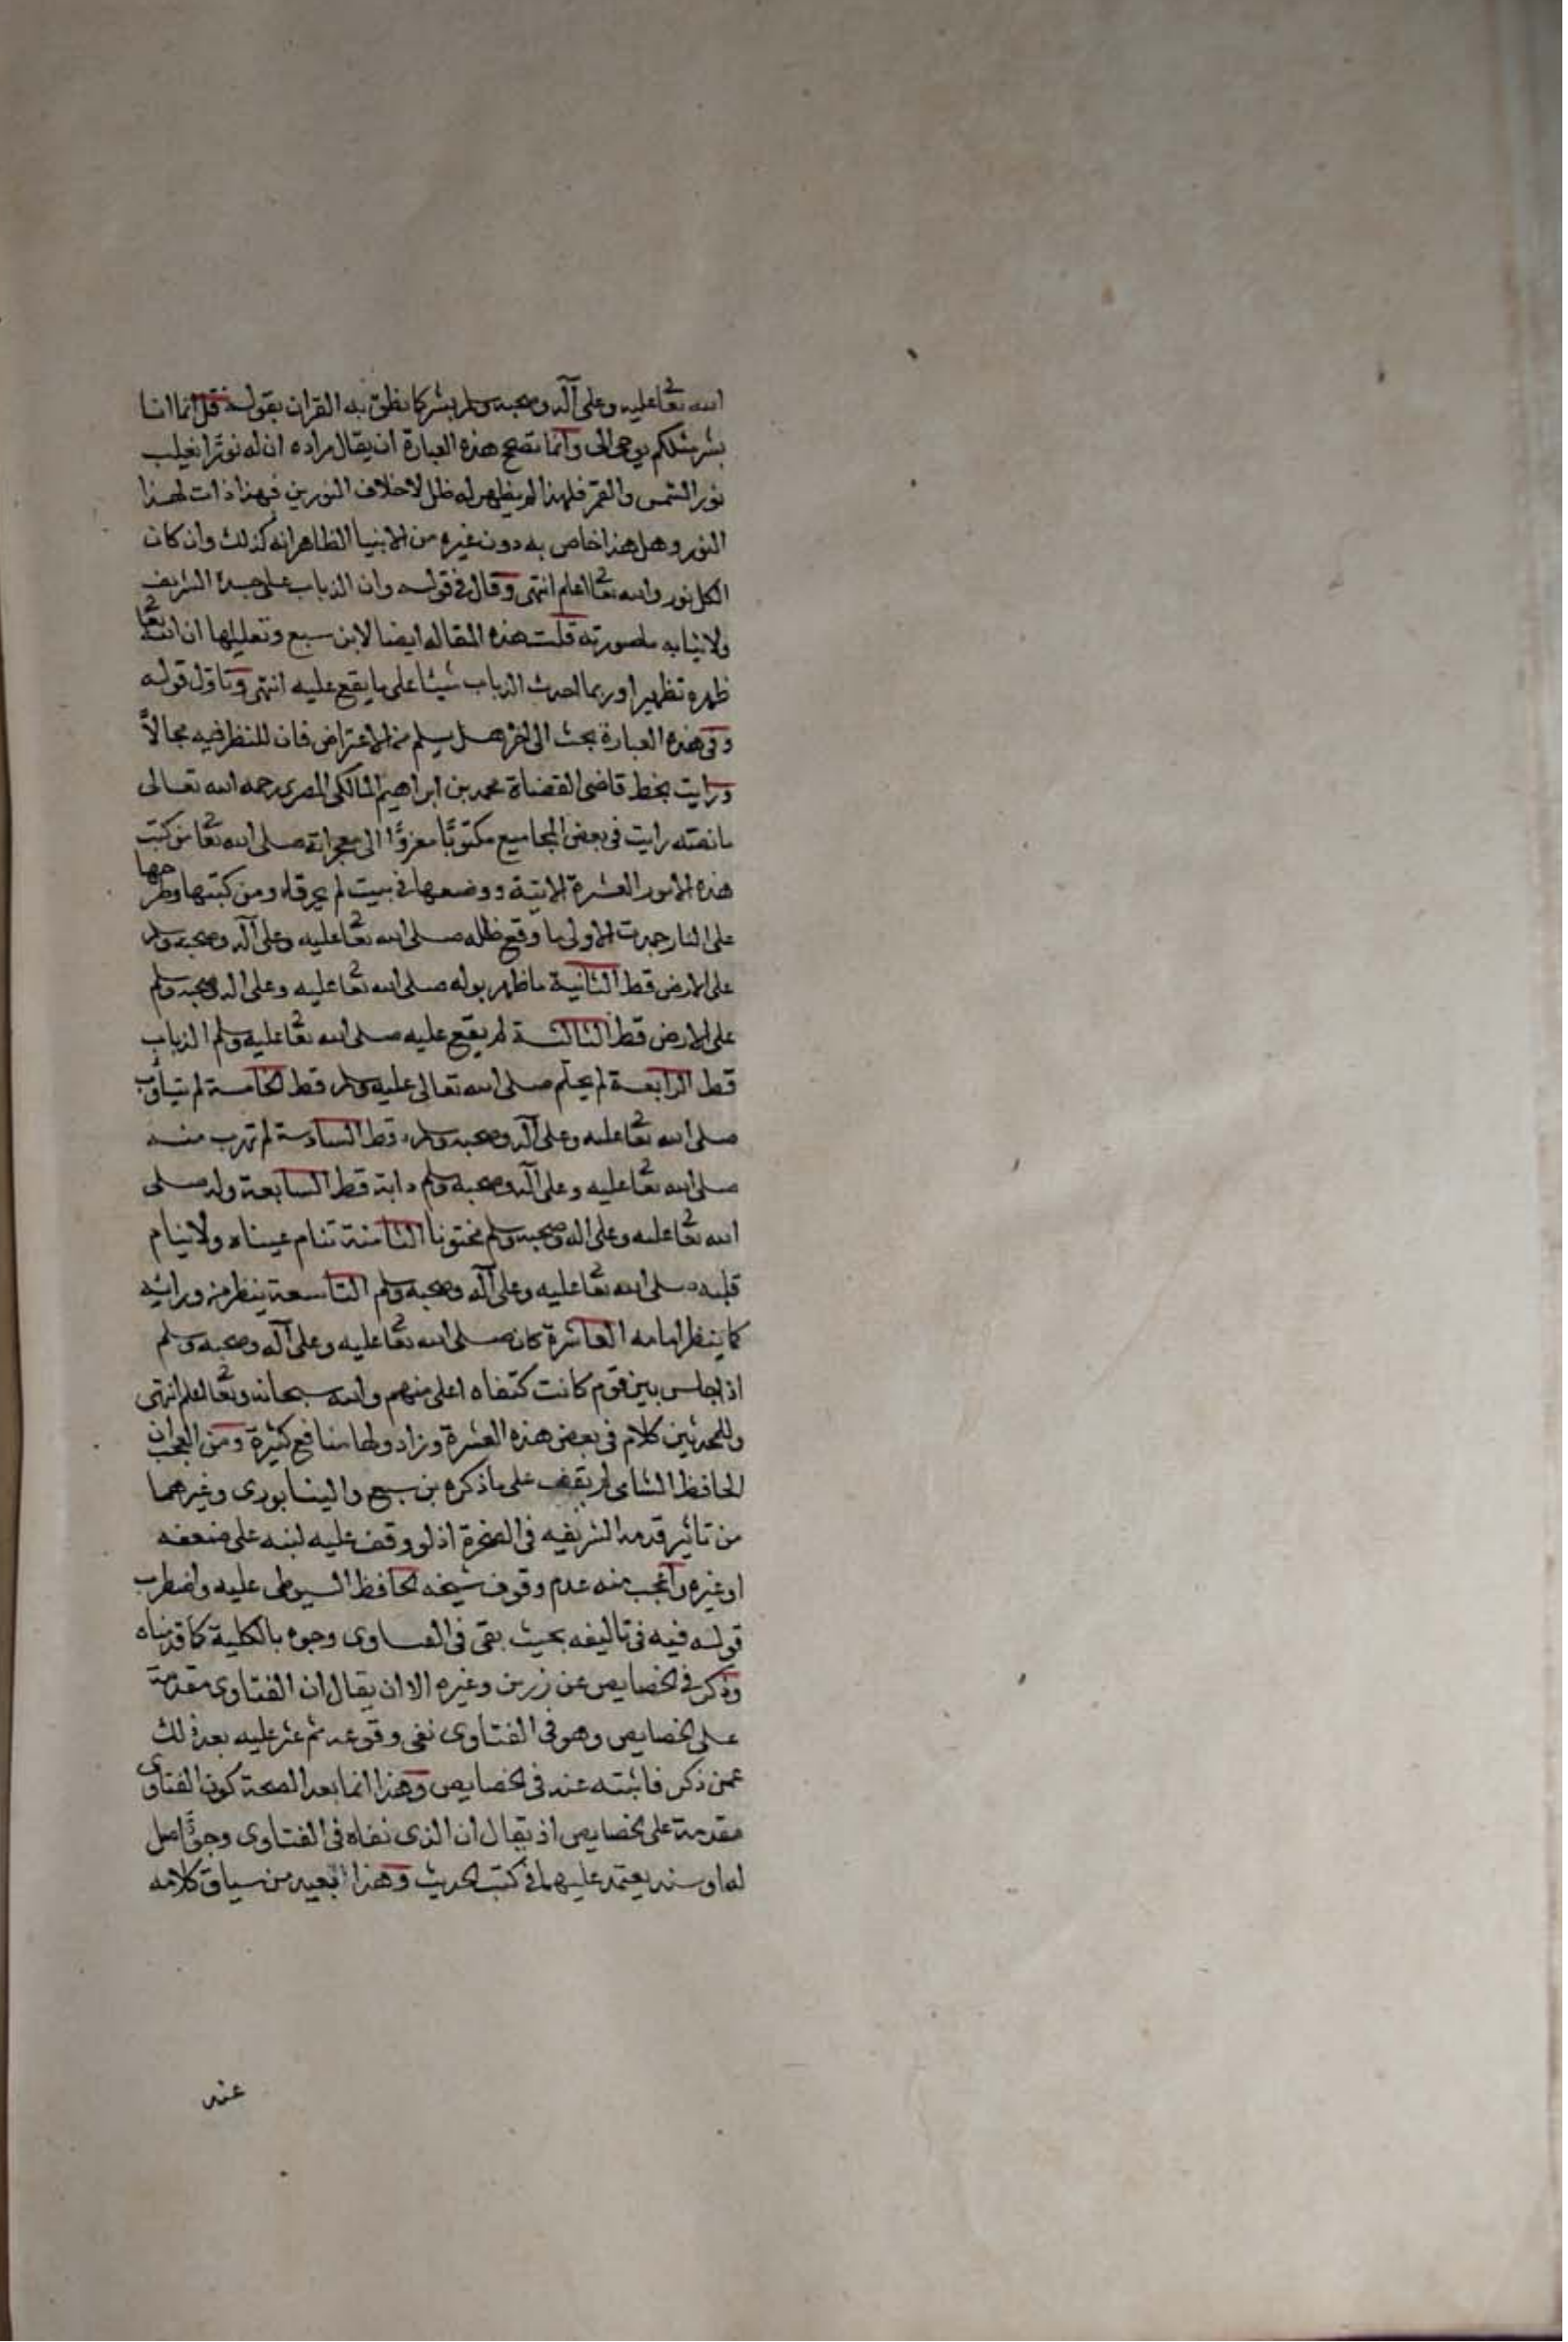 الله تعا عليه وعلى آله وصحبه وسلم بشر كما نطق به القران بقوله قل انما انا
بشر مثلكم يوحى الى وانما تصح هذه العبارة ان يقال مراده ان له نورا يغلب
نور الشمس والقمر فلهذا لم يظهر له ظل لاختلاف النورين فهذا ذات لهذا
النور وهل هذا خاص به دون غيره من الانبيا الظاهر انه كذلك وان كان
الكل نور والله تعا اعلم انتهى وقال في قوله وان الذباب على جسده الشريف
ولاثيابه ما صورته قلت هذه المقاله ايضا لابن سبع وتعليلها ان الله تعا
طهره تطهيرا وربما احدث الذباب شيئا على ما يقع عليه انتهى وتاول قوله
وفي هذه العبارة بحث الى اخره هل يسلم من الاعتراض فان للنظر فيه مجالاً
ورايت بخط قاضى القضاة محمد بن ابراهيم المالكى المصرى رحمه الله تعالى
ما نصه رايت فى بعض المجاميع مكتوبًا معزوًّا الى معجزاته صلى الله تعا من كتب
هذه الامور العشرة الاتية ووضعها في بيت لم يحرق ومن كتبها وطرحها
على النار خمدت الاولى ما وقع ظله صلى الله تعا عليه وعلى آله وصحبه وسلم
على الارض قط الثانية ما ظهر بوله صلى الله تعا عليه وعلى اله وصحبه وسلم
على الارض قط الثالثة لم يقع عليه صلى الله تعا عليه وسلم الذباب
قط الرابعة لم يحتلم صلى الله تعالى عليه وسلم قط الخامسة لم يتثاوب
صلى الله تعا عليه وعلى آله وصحبه وسلم قط السادسة لم تهرب منه
صلى الله تعا عليه وعلى آله وصحبه وسلم دابة قط السابعة ولد صلى
الله تعا عليه وعلى اله وصحبه وسلم مختونا الثامنة تنام عيناه ولا ينام
قلبه صلى الله تعا عليه وعلى آله وصحبه وسلم التاسعة ينظر من ورائه
كما ينظر امامه العاشرة كان صلى الله تعا عليه وعلى آله وصحبه وسلم
اذا جلس بين قوم كانت كتفاه اعلى منهم والله سبحانه وتعا اعلم انتهى
وللمحدثين كلام فى بعض هذه العشرة وزادوا لها منافع كثيرة ومن العجب ان
الحافظ الشامى لم يقف على ما ذكره بن سبع والنيسابورى وغيرهما
من تاثير قدمه الشريفه فى الصخرة اذ لو وقف عليه لنبه على ضعفه
او غيره واعجب منه عدم وقوف شيخه الحافظ السيوطى عليه واضطرب
قوله فيه فى تاليفه بحيث بقى فى الفتاوى وجوه بالكلية كما قدمناه
وذكر فى الخصايص عن رزين وغيره الا ان يقال ان الفتاوى مقدمة
على الخصايص وهو فى الفتاوى نفى وقوعه ثم عثر عليه بعد ذلك
عمن ذكر فاثبته عنه فى الخصايص وهذا انما بعد الصحة كون الفتاوى
مقدمة على الخصايص اذ يقال ان الذى نفاه فى الفتاوى وجود اصل
له او سند يعتمد عليهما فى كتب الحديث وهذا بعيد من سياق كلامه
عند